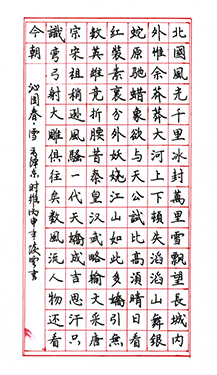 北國風光千里冰封萬里雪飄望長城内
外惟余莽莽大河上下頓失滔滔山舞銀
蛇原馳蜡象欲与天公試比高須晴日看
红裝素裹分外妖娆江山如此多嬌引無
数英雄競折腰惜秦皇漢武略輸文采唐
宗宋祖稍遜風騷一代天驕成吉思汗只
識彎弓射大雕俱往矣数風流人物还看
今朝
沁园春·雪 毛泽东 时维丙申年